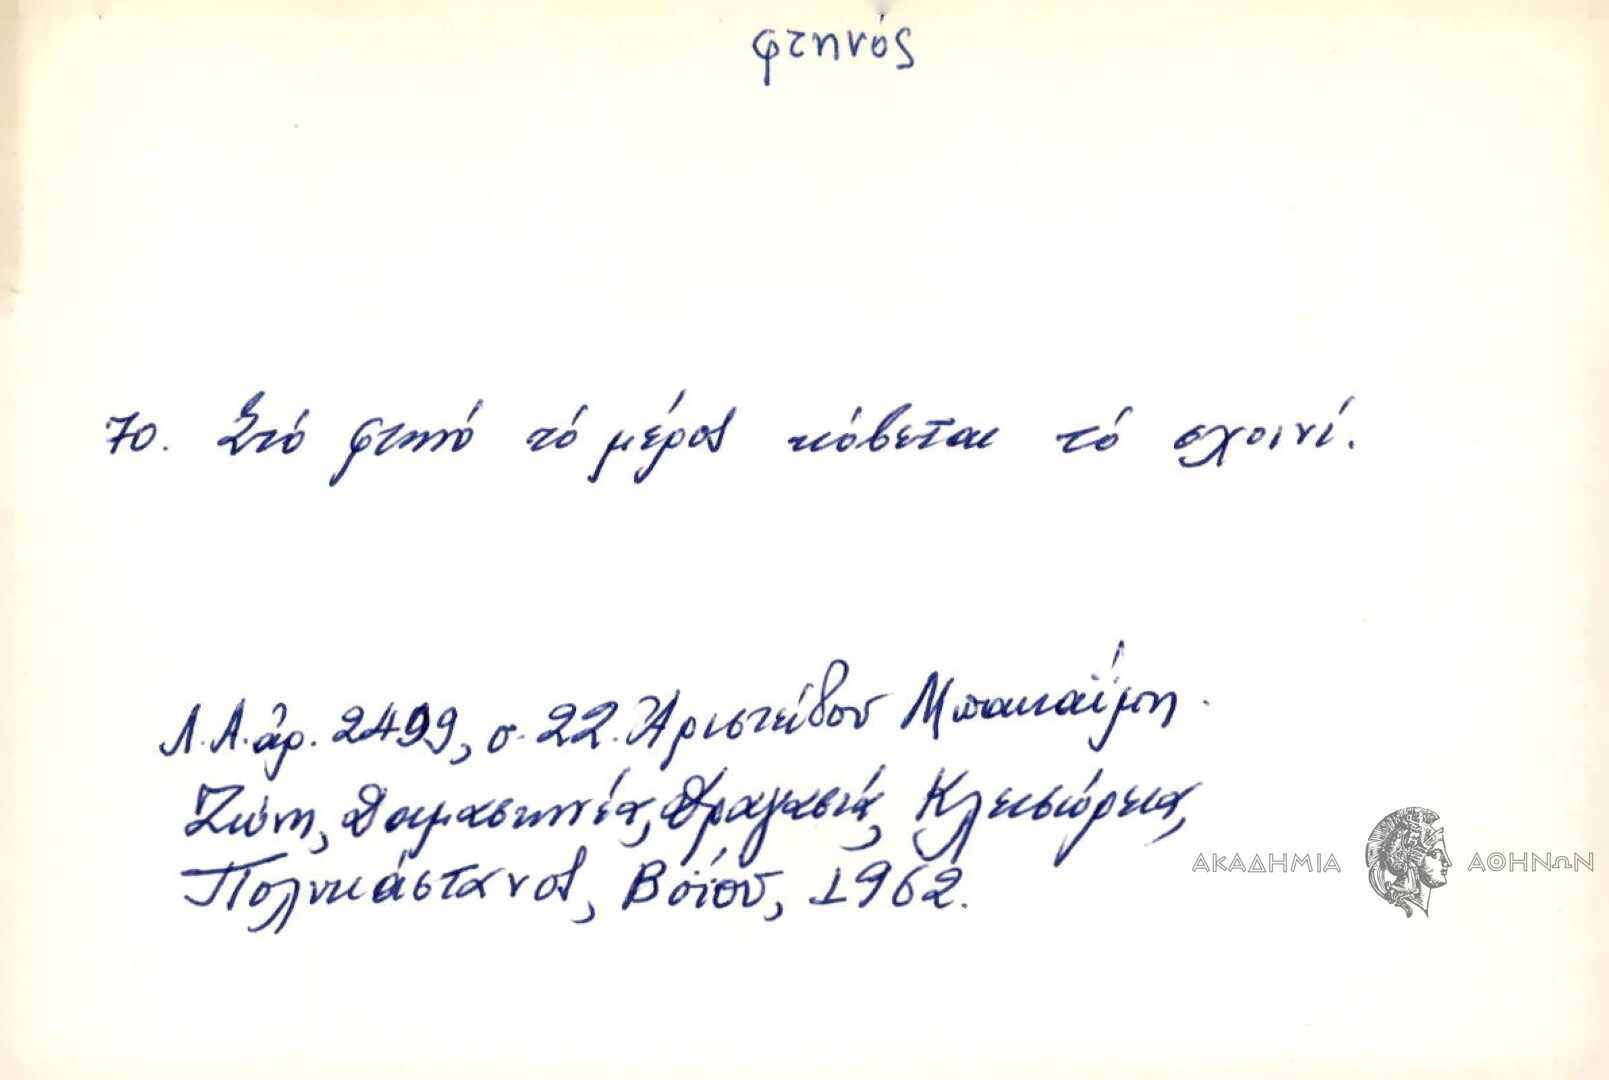 φτηνός
70. Στό φτηνό τό μέρος κόβεται τό σχοινί.
Λ.Α. ἀρ. 2499, σ. 22. Ἀριστείδου Μπακαΐμη.
Ζώνη, Δαμασκηνέα, Δραγασιά, Κλεισώρεια,
Πολυκάστανος, Βοΐου, 1962.
ΑΚΑΔΗΜΙΑ ΑΘΗΝΩΝ